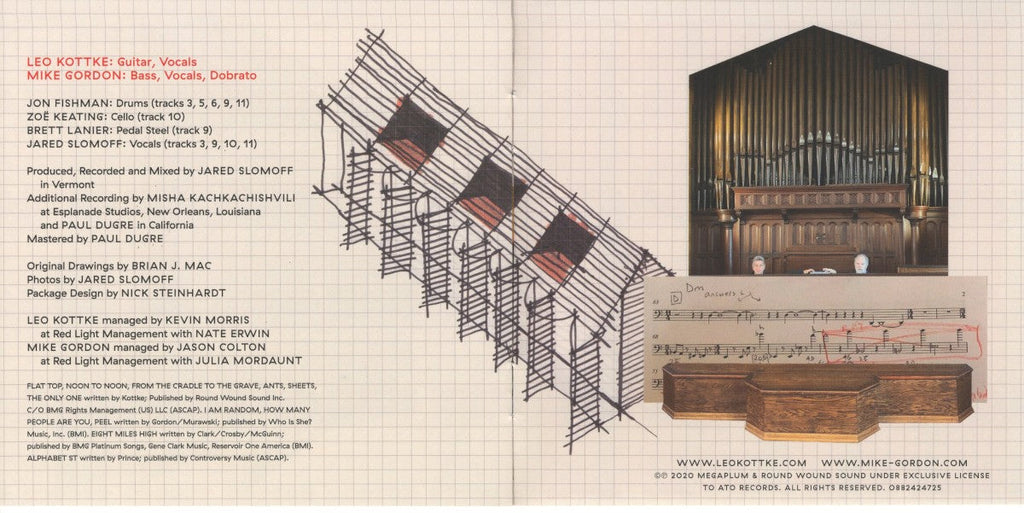 LEO KOTTKE: Guitar, Vocals
MIKE GORDON: Bass, Vocals, Dobrato
JON FISHMAN: Drums (tracks 3, 5, 6, 9, 11)
ZOË KEATING: Cello (track 10)
BRETT LANIER: Pedal Steel (track 9)
JARED SLOMOFF: Vocals (tracks 3, 9, 10, 11)
Produced, Recorded and Mixed by JARED SLOMOFF
in Vermont
Additional Recording by MISHA KACHKACHISHVILI
at Esplanade Studios, New Orleans, Louisiana
and PAUL DUGRE in California
Mastered by PAUL DUGRE
Original Drawings by BRIAN J. MAC
Photos by JARED SLOMOFF
Package Design by NICK STEINHARDT
LEO KOTTKE managed by KEVIN MORRIS
at Red Light Management with NATE ERWIN
MIKE GORDON managed by JASON COLTON
at Red Light Management with JULIA MORDAUNT
FLAT TOP, NOON TO NOON, FROM THE CRADLE TO THE GRAVE, ANTS, SHEETS,
THE ONLY ONE written by Kottke; Published by Round Wound Sound Inc.
C/O BMG Rights Management (US) LLC (ASCAP). I AM RANDOM, HOW MANY
PEOPLE ARE YOU, PEEL written by Gordon/Murawski; published by Who Is She?
Music, Inc. (BMI). EIGHT MILES HIGH written by Clark/Crosby/McGuinn;
published by BMG Platinum Songs, Gene Clark Music, Reservoir One America (BMI).
ALPHABET ST written by Prince; published by Controversy Music (ASCAP).
Dm
D answers
2
63
68
WWW.LEOKOTTKE.COM WWW.MIKE-GORDON.COM
©℗ 2020 MEGAPLUM & ROUND WOUND SOUND UNDER EXCLUSIVE LICENSE
TO ATO RECORDS. ALL RIGHTS RESERVED. 0882424725